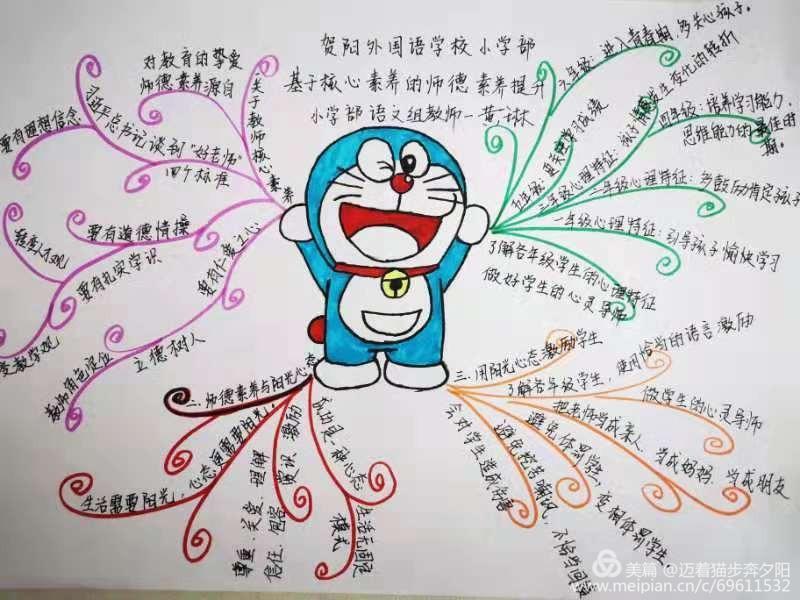 贺阳外国语学校小学部
基于核心素养的师德素养提升
小学部语文组教师—黄琳
一.关于教师核心素养
对教育的挚爱
师德素养源自
习近平总书记谈到"好老师"
四个标准
要有理想信念
要有道德情操
要有扎实学识
要有仁爱之心
立德树人
教师角色定位
教学观
二.师德素养与阳光心态
生活需要阳光,心态更需要阳光,
尊重、关爱、理解
信任、包容
赏识、激励
成功是一种心态
生活无固定
模式
三.用阳光心态激励学生
了解各年级学生,使用恰当的语言激励
做学生的心灵导师
把老师当成亲人、当成妈妈、当成朋友
避免体罚学生,变相体罚学生,
避免挖苦嘲讽,不恰当
会对学生造成伤害
了解各年级学生的心理特征
做好学生的心灵导师
一年级心理特征:引导孩子愉快学习
二年级心理特征:多鼓励肯定孩子
三年级心理特征:
发生变化的转折
四年级:培养学习能力,
思维能力的最佳时
期。
五年级:更关注学习成绩
六年级:进入青春期,多关心孩子。
美篇 @迈着猫步奔夕阳
www.meipian.cn/c/69611532